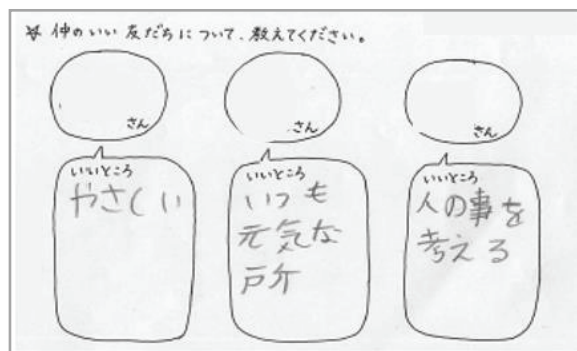 ☆ 仲のいい友だちについて、教えてください。
さん
さん
さん
いいところ
やさしい
いいところ
いつも
元気な
所
いいところ
人の事を
考える